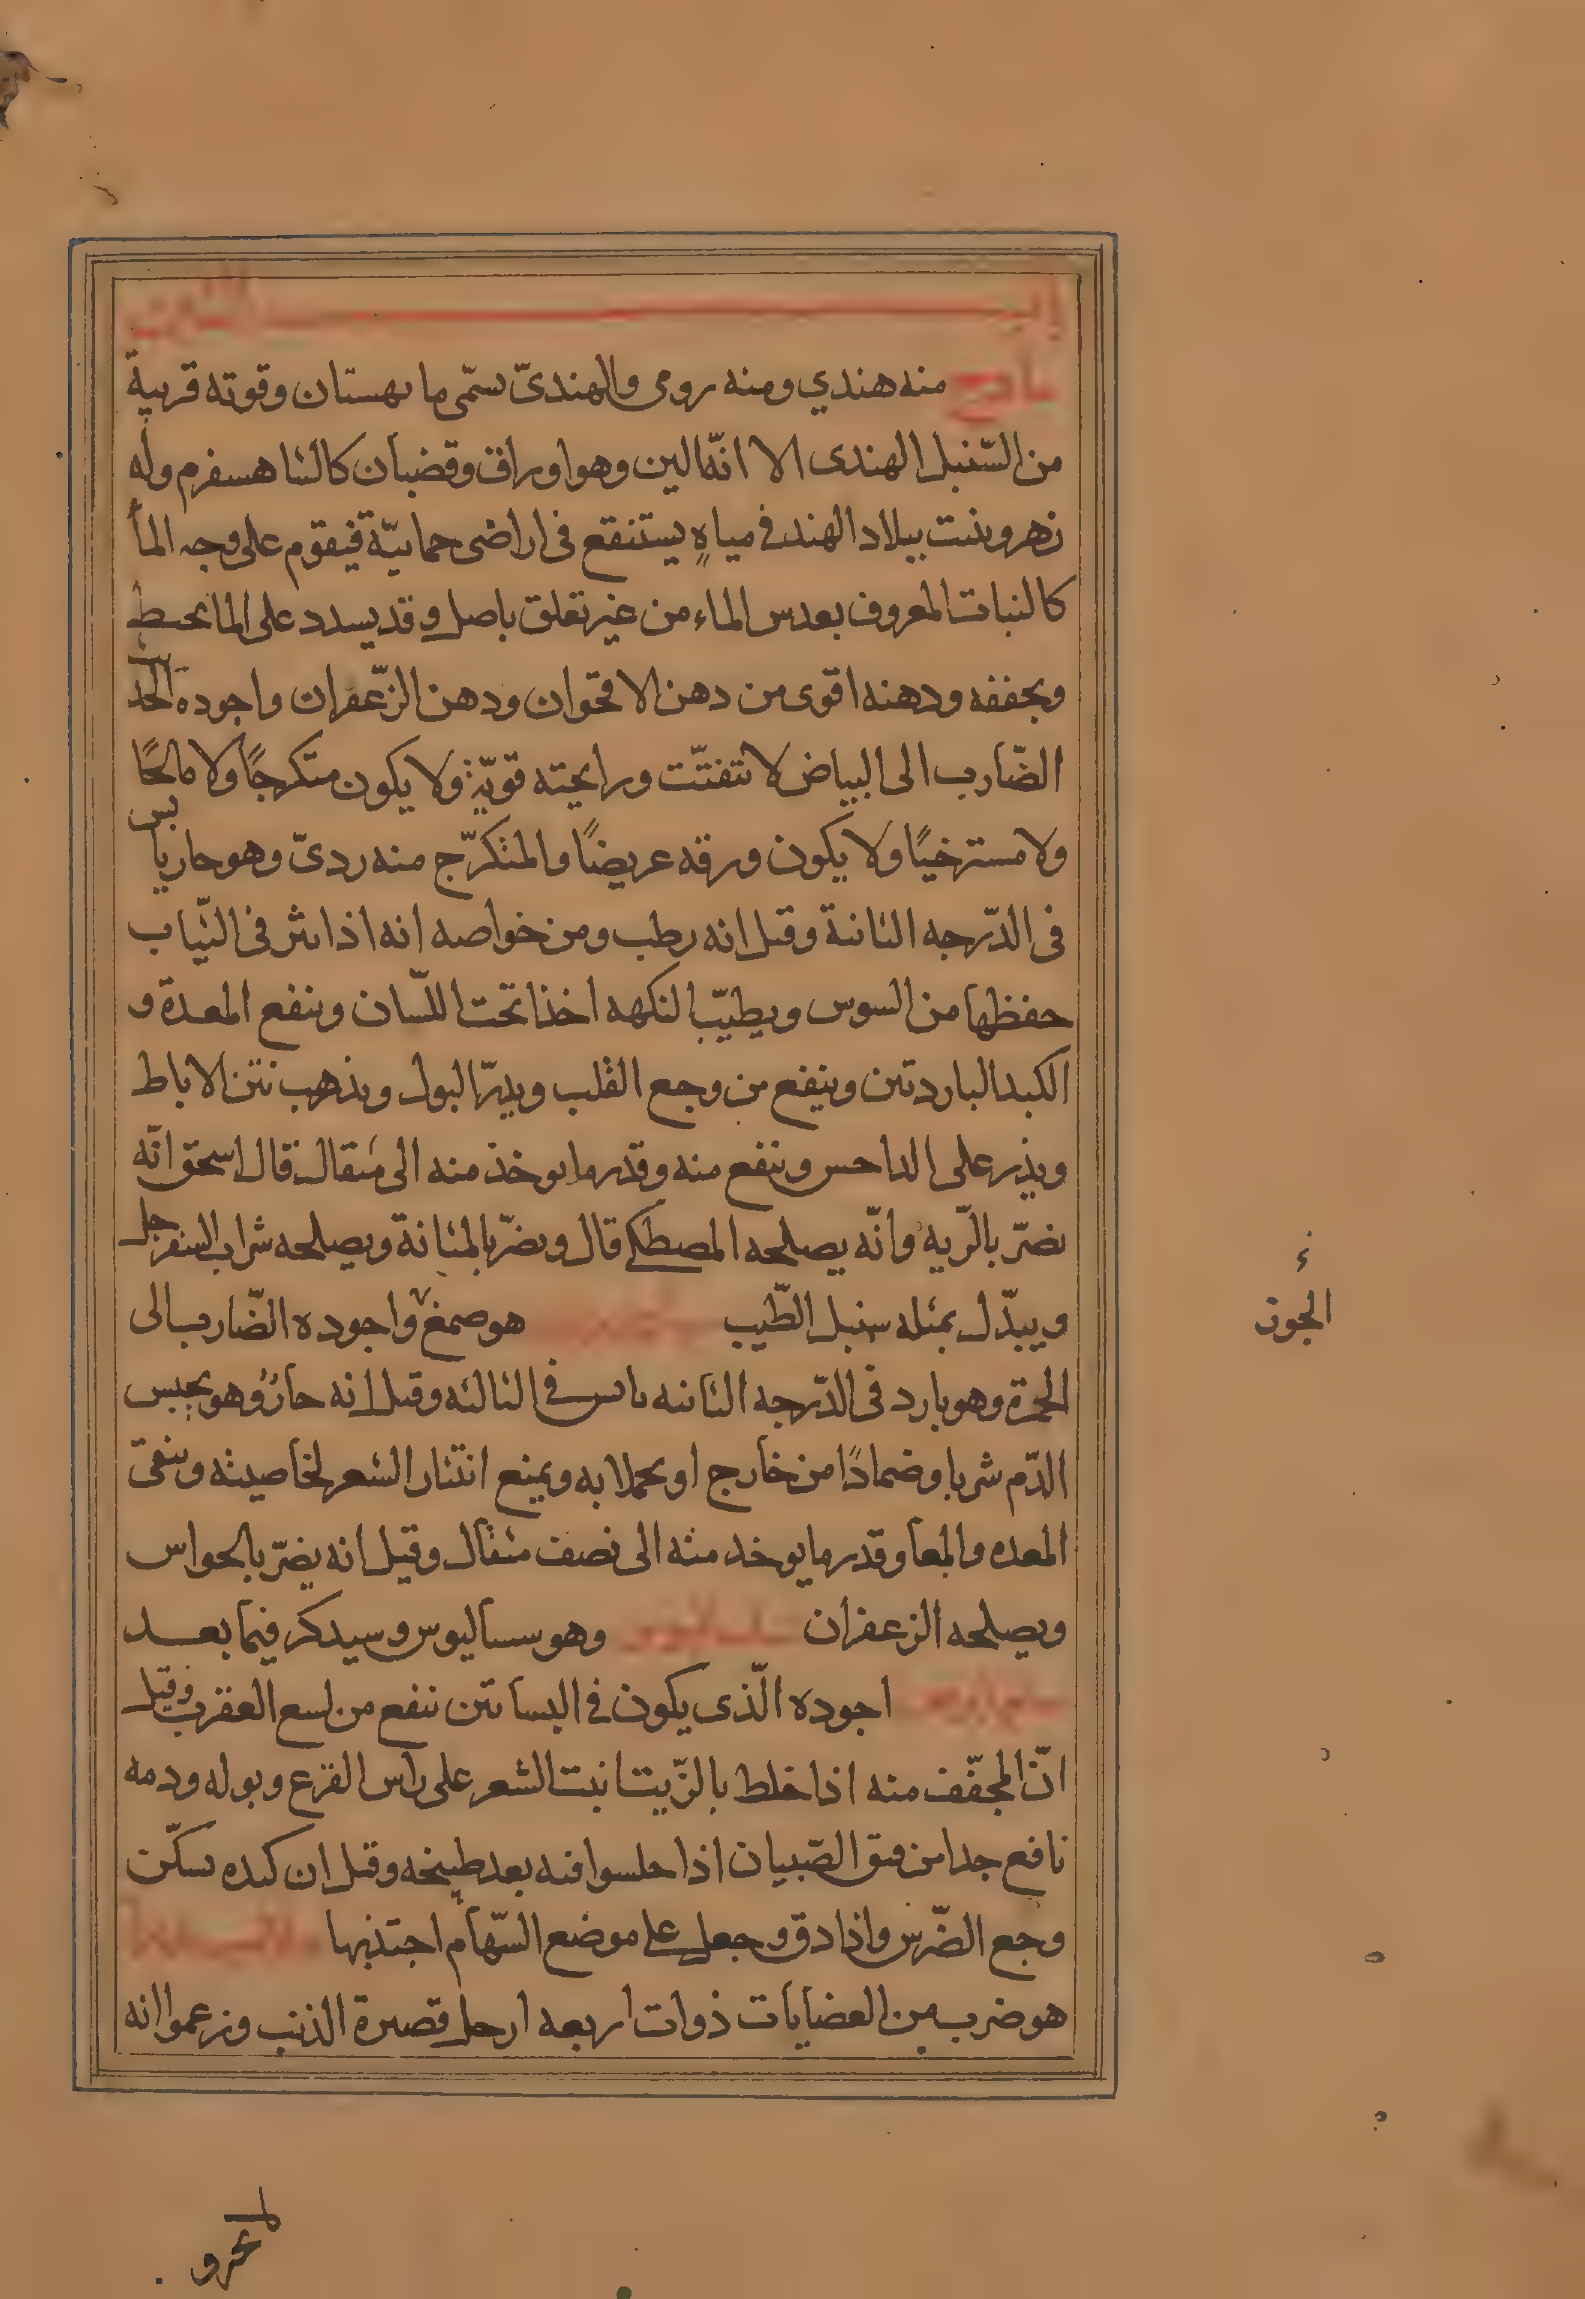 باب السين
ساذج منه هندي ومنه رومى والهندىّ سمّى ما بهستان وقوته قريبة
من السّنبل الهندى الا انّه الين وهو اوراق وقضبان كالشاهسفرم وله
زهر وينبت ببلاد الهند فى مياهٍ يستنقع فى اراضى حمائيّة فيقوم على وجه الماء
كالنبات المعروف بعدس الماء من غير تعلق باصل وقد يسدد على الما بخيط
ويجففه ودهنه اقوى من دهن الاقحوان ودهن الزّعفران واجوده الحديث
الضّارب الى البياض لا تتفتّت ورايحته قويّة ولا يكون متكرجًا ولا مالحًا
ولا مسترخيًا ولا يكون ورقه عريضًا والمتكرّج منه ردىّ وهو حار يابس
فى الدّرجه الثانية وقيل انه رطب ومن خواصه انه اذا نثر فى الثّياب
حفظها من السوس ويطيّب النكهه اخذا تحت اللّسان وينفع المعدة و
الكبد الباردتين وينفع من وجع القلب ويدرّ البول ويذهب نتن الاباط
ويذر على الداحس وينفع منه وقدر ما يوخذ منه الى مثقال قال اسحق انّه
يضرّ بالرّيه وانّه يصلحه المصطكى قال ويضرّ بالمثانة ويصلحه شراب السفرجل
ويبدّل بمثله سنبل الطّيب هو صمغ واجوده الضّارب الى
الحمرة وهو بارد فى الدّرجه الثانيه يابس فى الثالثه وقيل انه حارّ وهو يحبس
الدّم شربا وضمادًا من خارج او بحملا به ويمنع انتثار الشعر لخاصيته وينقى
المعده والمعا وقدر ما يوخد منه الى نصف مثقال وقيل انه يضرّ بالحواس
ويصلحه الزعفران ساساليوس وهو سساليوس وسيدكر فيما بعد
اجوده الّذى يكون فى البساتين ينفع من لسع العقرب وقيل
انّ المجفّف منه اذا خلط بالزّيت انبت الشعر على راس القرع وبوله ودمه
نافع جدا من فتق الصّبيان اذا جلسوا فيه بعد طبيخه وقيل ان كبده يسكّن
وجع الضّرس واذا دق وجعل على موضع السّهام اجتذبها
هو ضرب من العضايات ذوات اربعه ارجل قصيرة الذنب وزعموا انه
الجوف